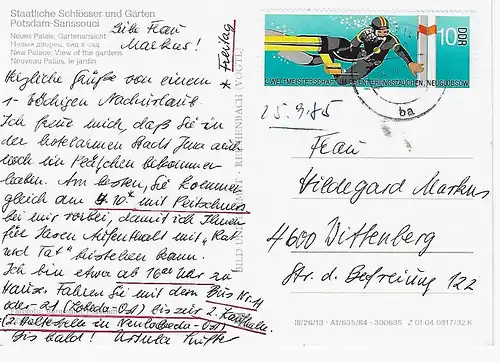 Staatliche Schlösser und Gärten
Potsdam-Sanssouci
Neues Palais, Gartenansicht
Новый дворец, вид в сад
New Palace, View of the gardens
Nouveau Palais, le jardin
Liebe Frau
Markus!
* Freitag
Herzliche Grüße von einem
1-wöchigen Nachurlaub.
Ich freue mich, daß Sie in
der hotelarmen Stadt Jena auch
noch ein Plätzchen bekommen
haben. Am besten, Sie kommen
gleich am 4.10.* mit
bei mir vorbei, damit ich Ihnen
für Ihren Aufenthalt mit „Rat
und Tat" beistehen kann.
Ich bin etwa ab 16 00 Uhr zu
Hause. Fahren Sie mit dem Bus Nr. 11
oder 21 (Lobeda-Ost) bis zur 2. Kaufhalle
(2. Haltestelle in Neulobeda-Ost)
Bis bald! Ursula
BILD UND HEIMAT REICHENBACH (VOGTL)
2. WELTMEISTERSCHAFT IM ORIENTIERUNGSTAUCHEN, NEUGLOBSOW
DDR
10
ba
25.9.85
Frau
Hildegard Markus
4600 Wittenberg
Str. d. Befreiung 122
III/26/13 · A1/635/84 · 300635 Z 01 04 0317/32 K